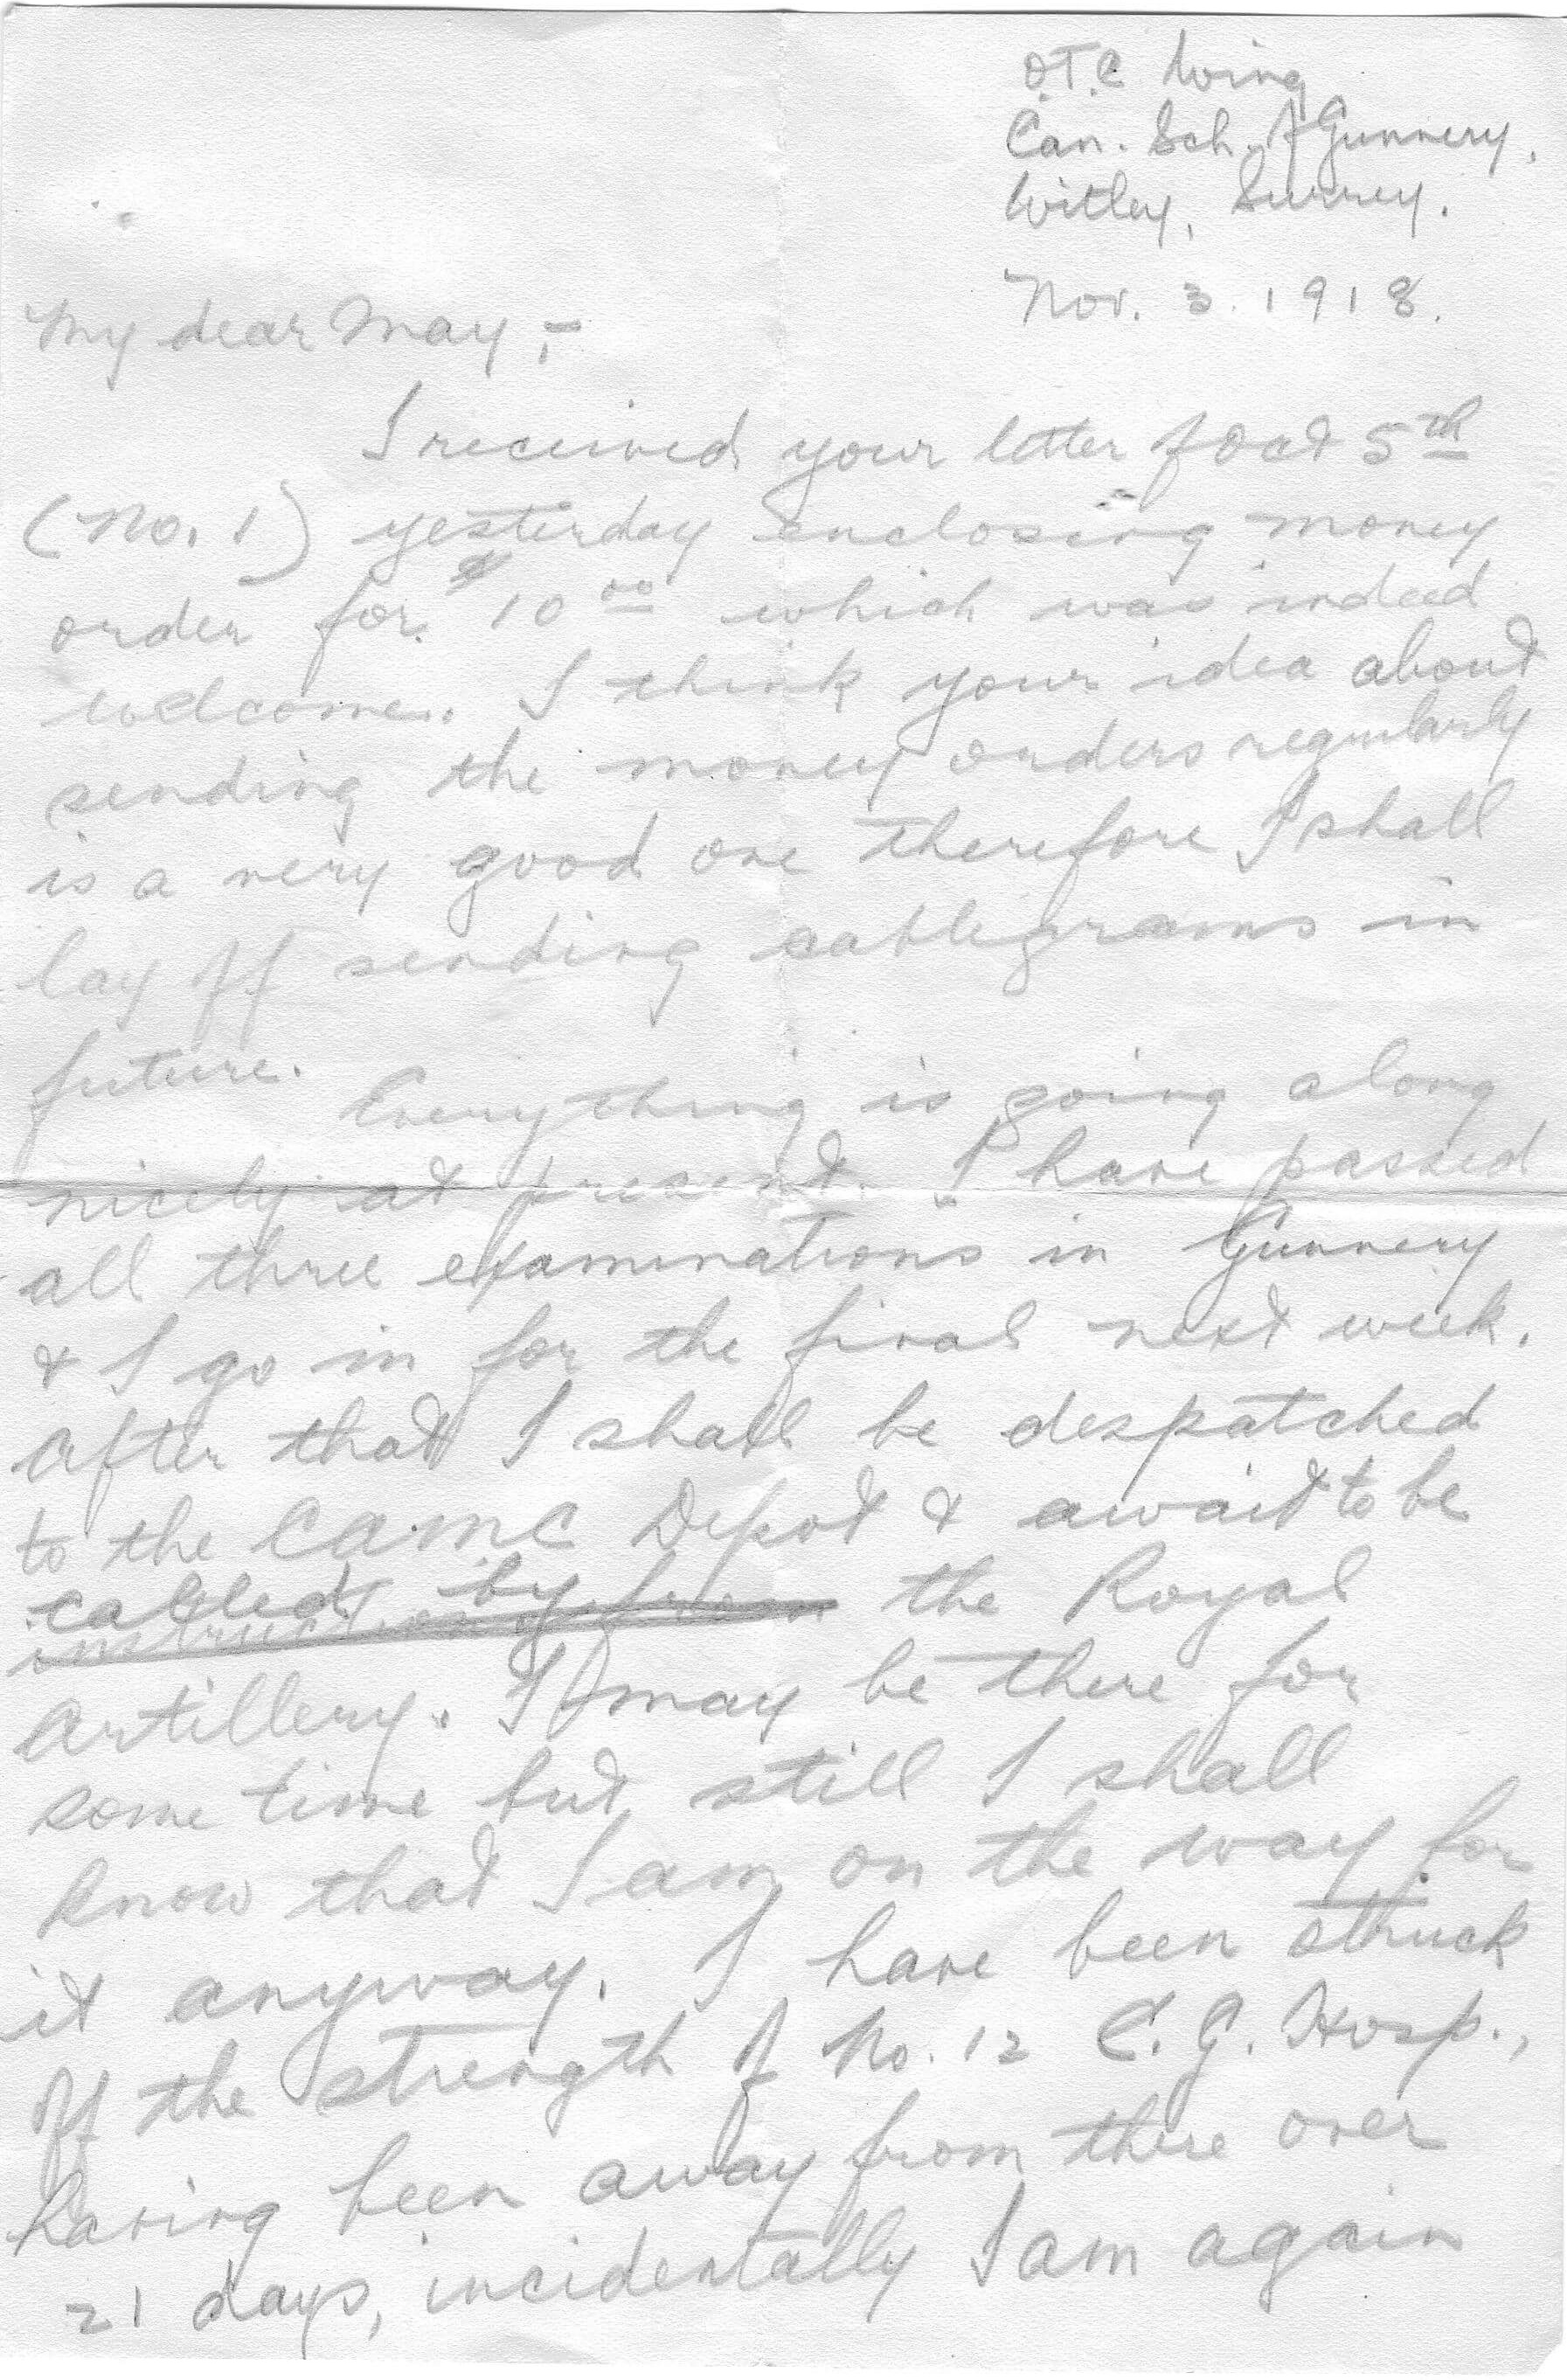 O.T.C Wing
Can. Sch. of Gunnery,
Witley, Surrey.
Nov. 3. 1918.
My dear May,-
I received your letter of Oct 5th
(No. 1) yesterday enclosing money
order for $10.00 which was indeed
welcome. I think your idea about
sending the money orders regularly
is a very good one therefore I shall
lay off sending cablegrams in
future.
Everything is going along
nicely at present. I have passed
all three examinations in Gunnery
& I go in for the final next week.
After that I shall be despatched
to the CAMC Depot & await to be
called by
instructions from the Royal
Artillery. I may be there for
some time but still I shall
know that I am on the way for
it anyway. I have been struck
off the strength of No. 12 C.G. Hosp.,
having been away from there over
21 days, incidentally I am again